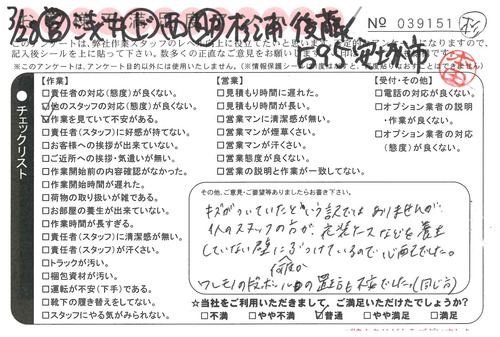 No 039151 杉
このアンケートは、弊社作業スタッフのレベル
※このアンケートは、アンケート目的以外には使用いたしません。
チェックリスト
【作業】
□責任者の対応(態度)が良くない。
☑他のスタッフの対応(態度)が良くない。
☑作業を見ていて不安がある。
□責任者(スタッフ)に好感が持てない。
□お客様への挨拶が出来ていない。
□ご近所への挨拶・気遣いが無い。
□作業開始前の内容確認がなかった。
□作業開始時間が遅れた。
□荷物の取り扱いが雑である。
□お部屋の養生が出来ていない。
□作業時間が長すぎる。
□責任者(スタッフ)に清潔感が無い。
□責任者(スタッフ)が汗くさい。
□トラックが汚い。
□梱包資材が汚い。
□運転が不安(下手)である。
□靴下の履き替えをしてない。
□スタッフにやる気がみられない。
【営業】
□見積もり時間に遅れた。
□見積もり時間が長い。
□営業マンに清潔感が無い。
□営業マンが煙草くさい。
□営業マンが汗くさい。
□営業態度が良くない。
□営業の説明と作業が一致してない。
【受付・その他】
□電話の対応が良くない。
□オプション業者の説明
・作業が良くない。
□オプション業者の対応
(態度)が良くない。
その他、ご意見・ご要望等ありましたらお書き下さい。
キズがついていたという訳ではありませんが、
1人のスタッフの方が、衣装ケースなどを養生
していない壁にぶつけているので心配でした。
何度か
ワレモノの段ボールの置き方も不安でした。(同じ方)
☆当社をご利用いただきまして、ご満足いただけたでしょうか?
□不満 □やや不満 ☑普通 □やや満足 □満足